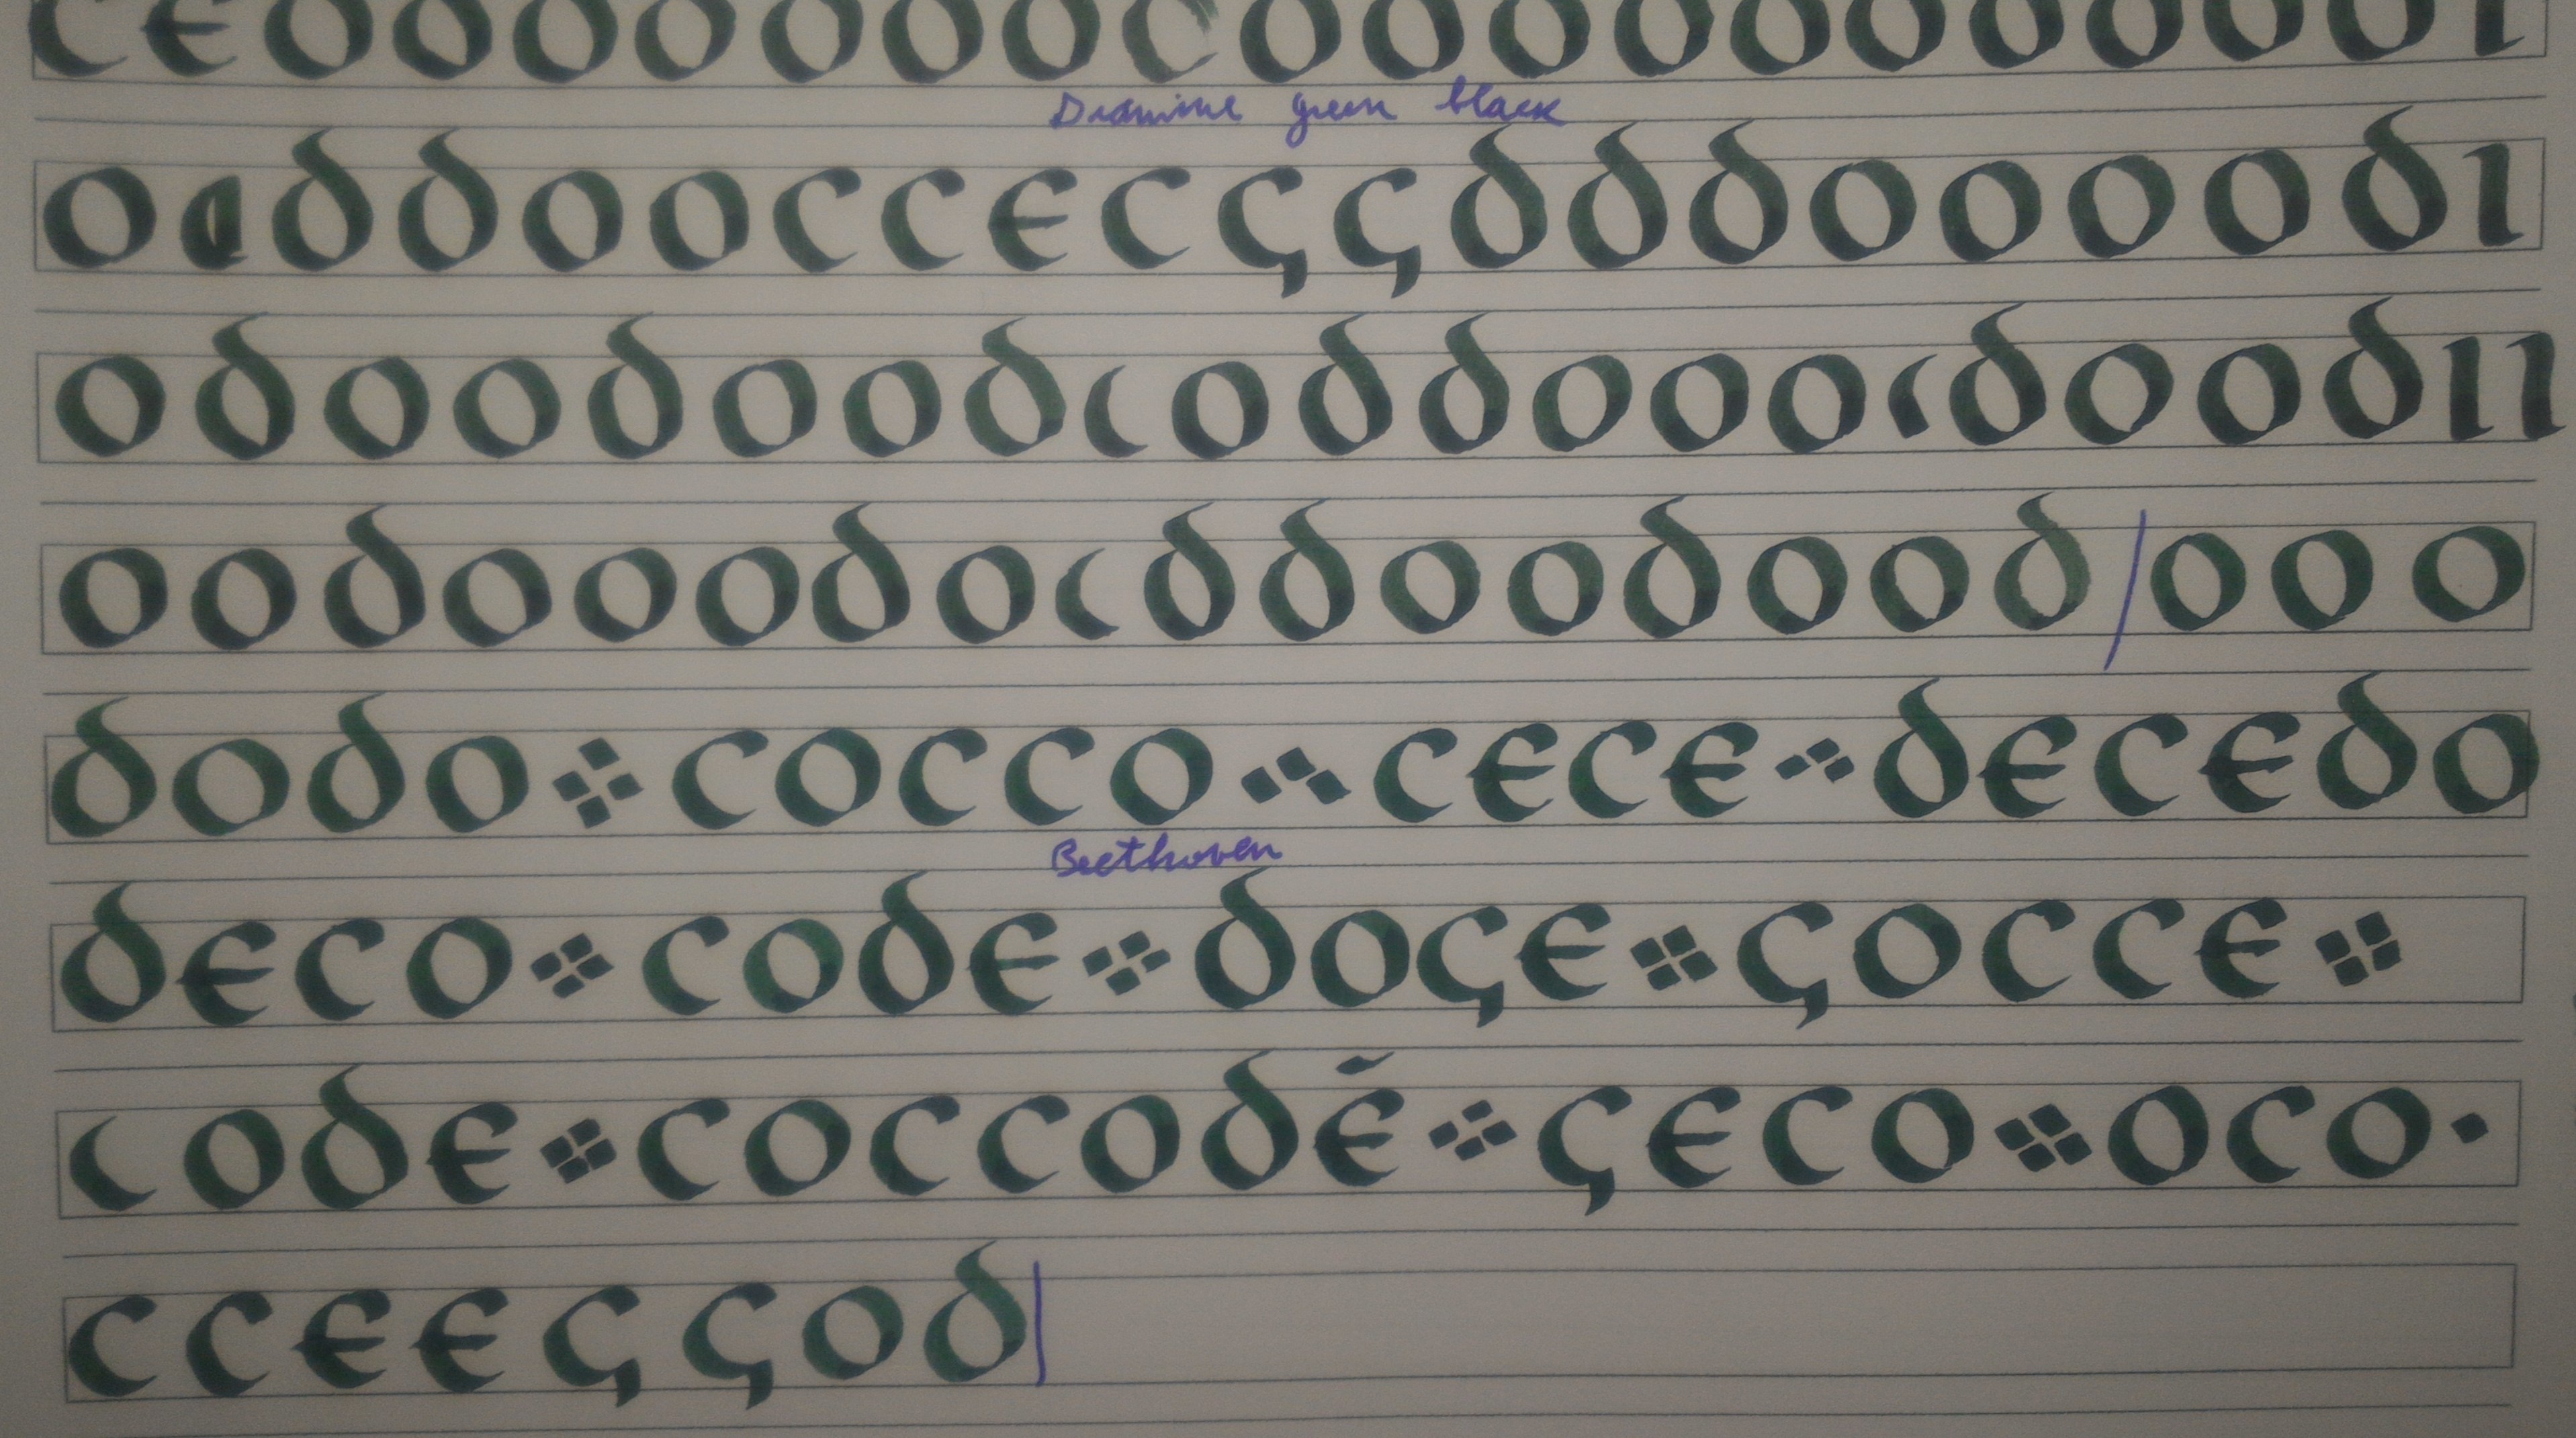 c e o o o o o o o c o o o o o o o o o o ı
Diamine green black
o d d o o c c e c ç ç d d d o o o o d ı
o d o o d o o d c o d d o o o c d o o d ı ı
o o d o o o d o c d d o o d o o d / o o o
dodo ⁘ cocco ∴ cece ∴ decedo
Beethoven
deco ⁘ code ⁘ doçe ⁘ çocce ⁘
code ⁘ coccodé ⁘ çeco ⁘ oco ·
c c e e ç ç o d |